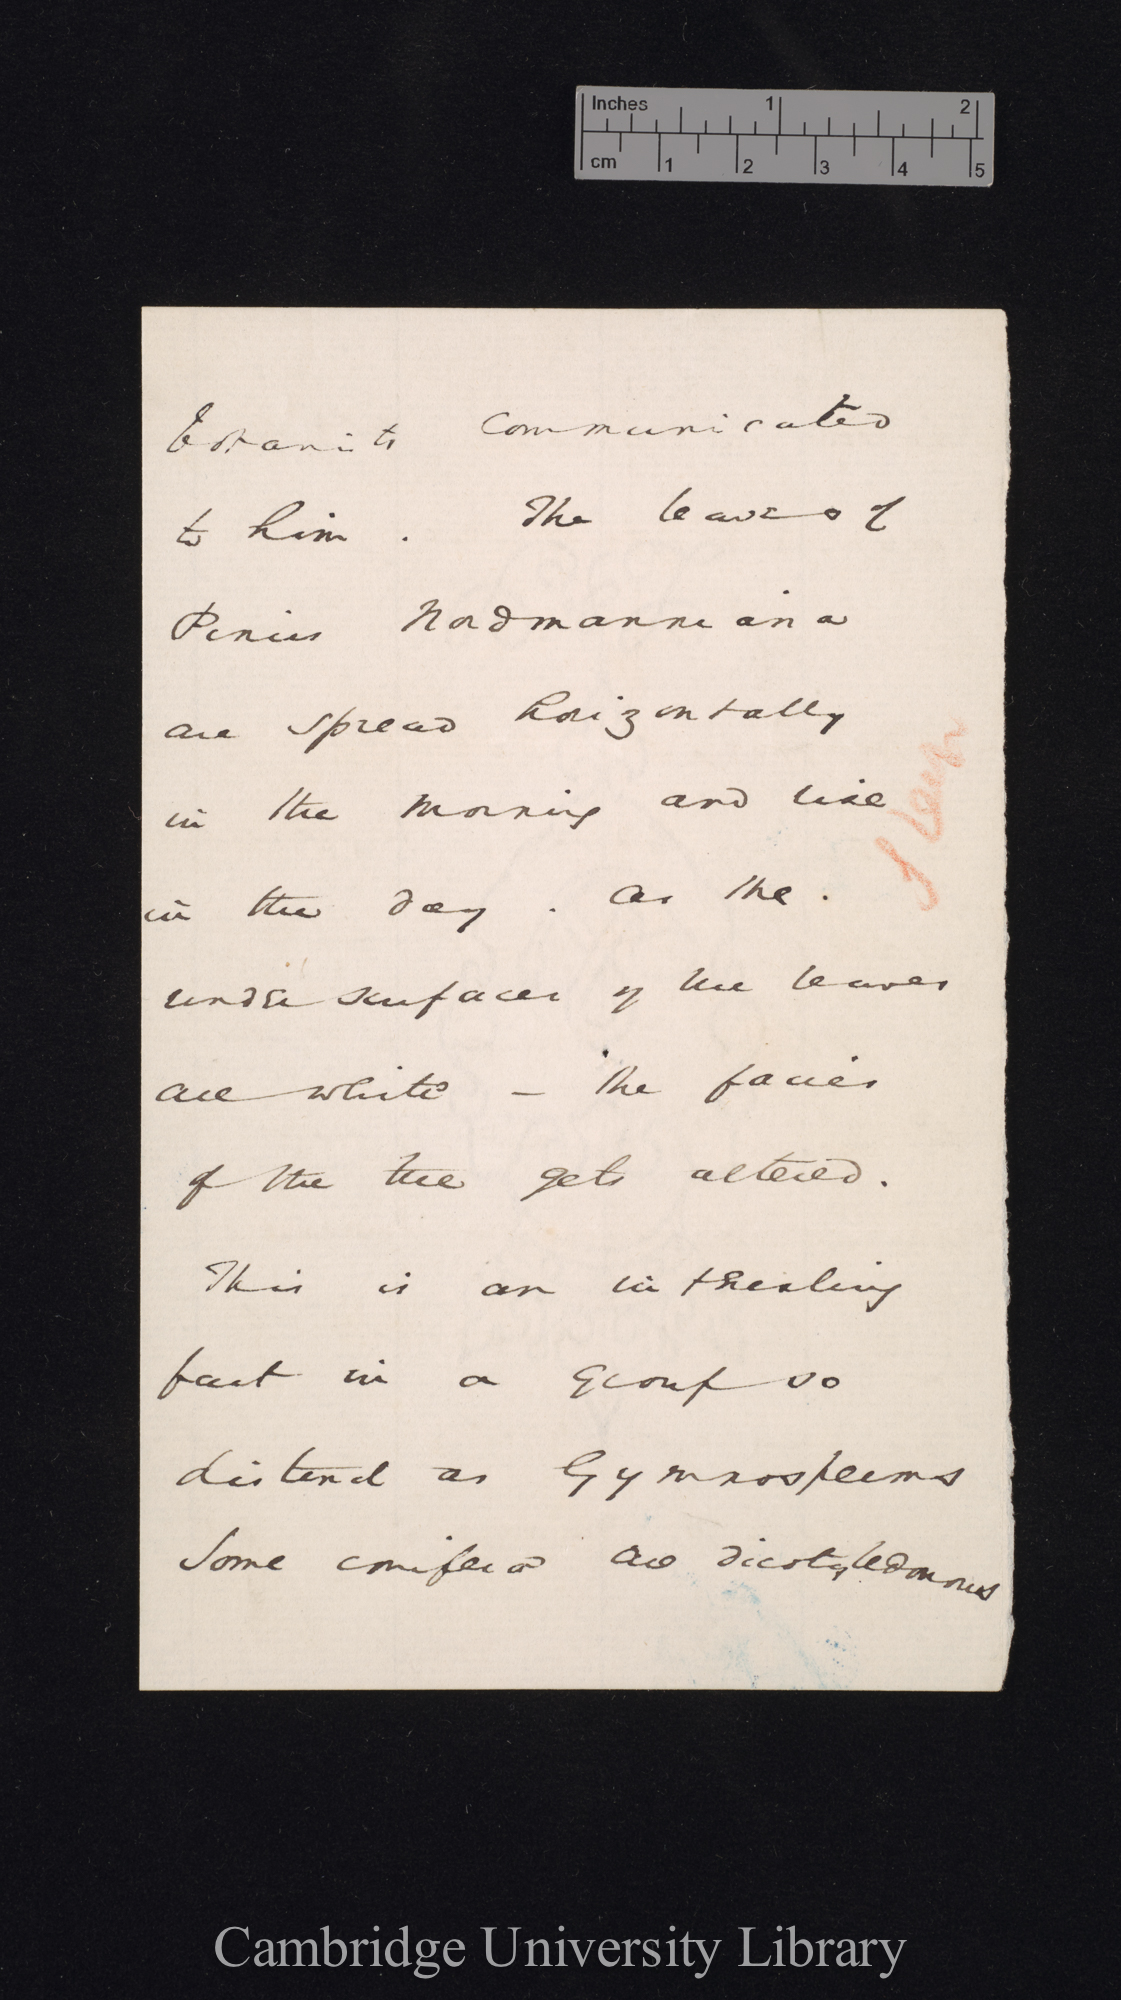 Inches 1 2
cm 1 2 3 4 5
botanists communicated
to him. The leaves of
Pinus Nordmanniana
are spread horizontally
in the morning and rise
in the day. As the.
under surfaces of the leaves
are white - the facies
of the tree gets altered.
This is an interesting
fact in a group so
distend as Gymnosperms
Some coniferæ are dicotyledonous
Cambridge University Library